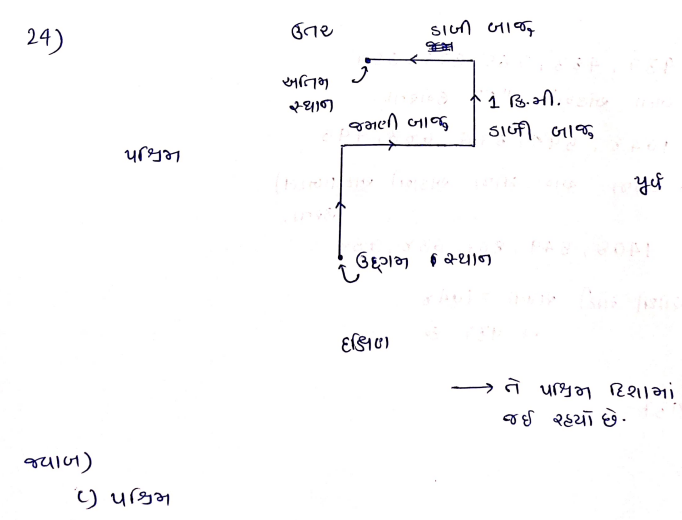 24)
ઉત્તર
ડાબી બાજુ
અંતિમ
સ્થાન
1 કિ.મી.
જમણી બાજુ
ડાબી બાજુ
પશ્ચિમ
પૂર્વ
ઉદ્દગમ સ્થાન
દક્ષિણ
→ તે પશ્ચિમ દિશામાં
જઈ રહ્યો છે.
જવાબ)
C) પશ્ચિમ